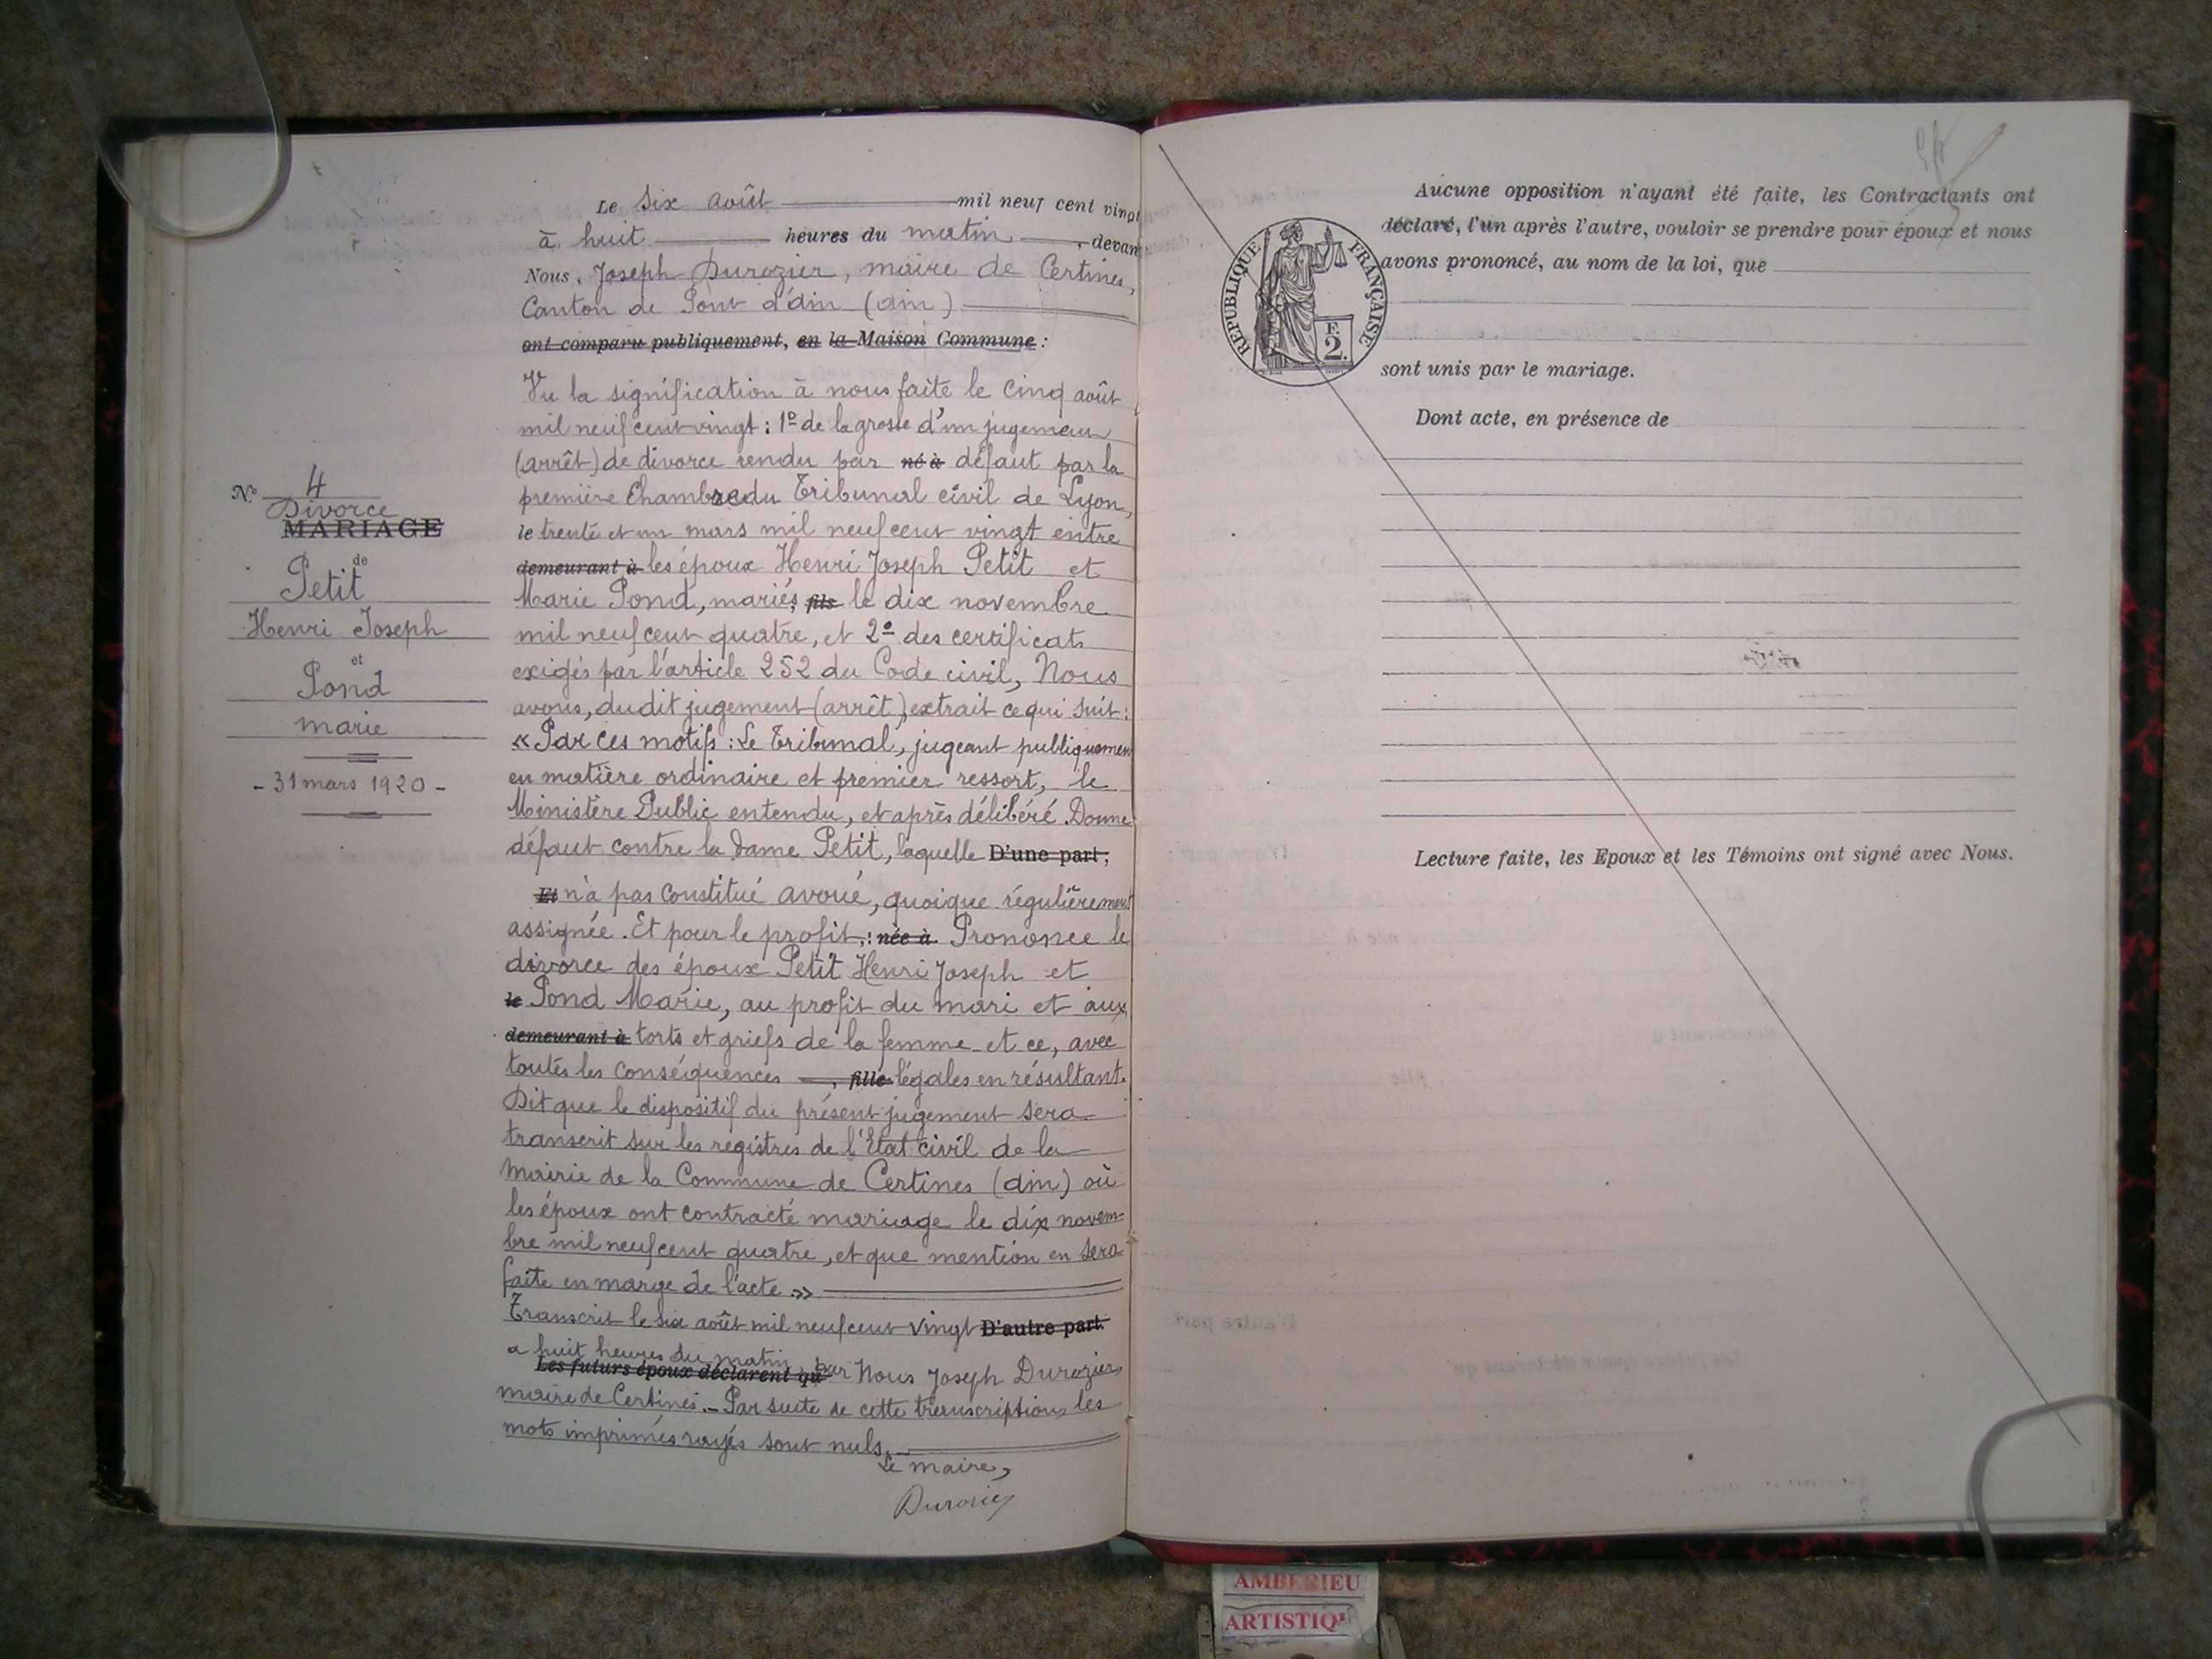 Le six août mil neuf cent vingt
à huit heures du matin, devant
Nous, Joseph Durozier, maire de Certines,
Canton de Pont d'ain (ain)
ont comparu publiquement, en la Maison Commune :
Vu la signification à nous faite le cinq août
mil neuf cent vingt : 1º de la grosse d'un jugement
(arrêt) de divorce rendu par né à défaut par la
première Chambre du Tribunal civil de Lyon,
le trente et un mars mil neuf cent vingt entre
demeurant à les époux Henri Joseph Petit et
Marie Pond, mariés, fils le dix novembre
mil neuf cent quatre, et 2º des certificats
exigés par l'article 252 du Code civil, Nous
avons, dudit jugement (arrêt), extrait ce qui suit :
« Par ces motifs : Le Tribunal, jugeant publiquement
en matière ordinaire et premier ressort, le
Ministère Public entendu, et après délibéré. Donne
défaut contre la dame Petit, laquelle D'une part ;
Et n'a pas constitué avoué, quoique régulièrement
assignée. Et pour le profit, : née à Prononce le
divorce des époux Petit Henri Joseph et
le Pond Marie, au profit du mari et aux
demeurant à torts et griefs de la femme et ce, avec
toutes les conséquences , fille légales en résultant.
Dit que le dispositif du présent jugement sera
transcrit sur les registres de l'Etat civil de la
Mairie de la Commune de Certines (ain) où
les époux ont contracté mariage le dix novem-
bre mil neuf cent quatre, et que mention en sera
faite en marge de l'acte. »
Transcrit le six août mil neuf cent vingt D'autre part.
a huit heures du matin, par Nous Joseph Durozier
Les futurs époux déclarent qu
maire de Certines. - Par suite de cette transcription, les
mots imprimés rayés sont nuls.
Le maire,
Durozier
Nº 4
Divorce
MARIAGE
de
Petit
Henri Joseph
et
Pond
marie
- 31 mars 1920 -
Aucune opposition n'ayant été faite, les Contractants ont
déclaré, l'un après l'autre, vouloir se prendre pour époux et nous
avons prononcé, au nom de la loi, que
RÉPUBLIQUE FRANÇAISE
F.
2.
sont unis par le mariage.
Dont acte, en présence de
Lecture faite, les Epoux et les Témoins ont signé avec Nous.
AMBERIEU
ARTISTIQU